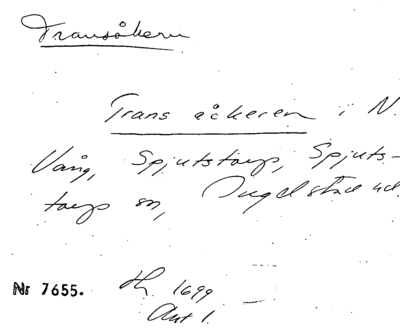 Transåkern
Trans åckeren i N.
Vång, Spjutstorp, Spjuts-
torp sn, Ingelstad hd.
Nr 7655. Jb. 1699
Akt 1.